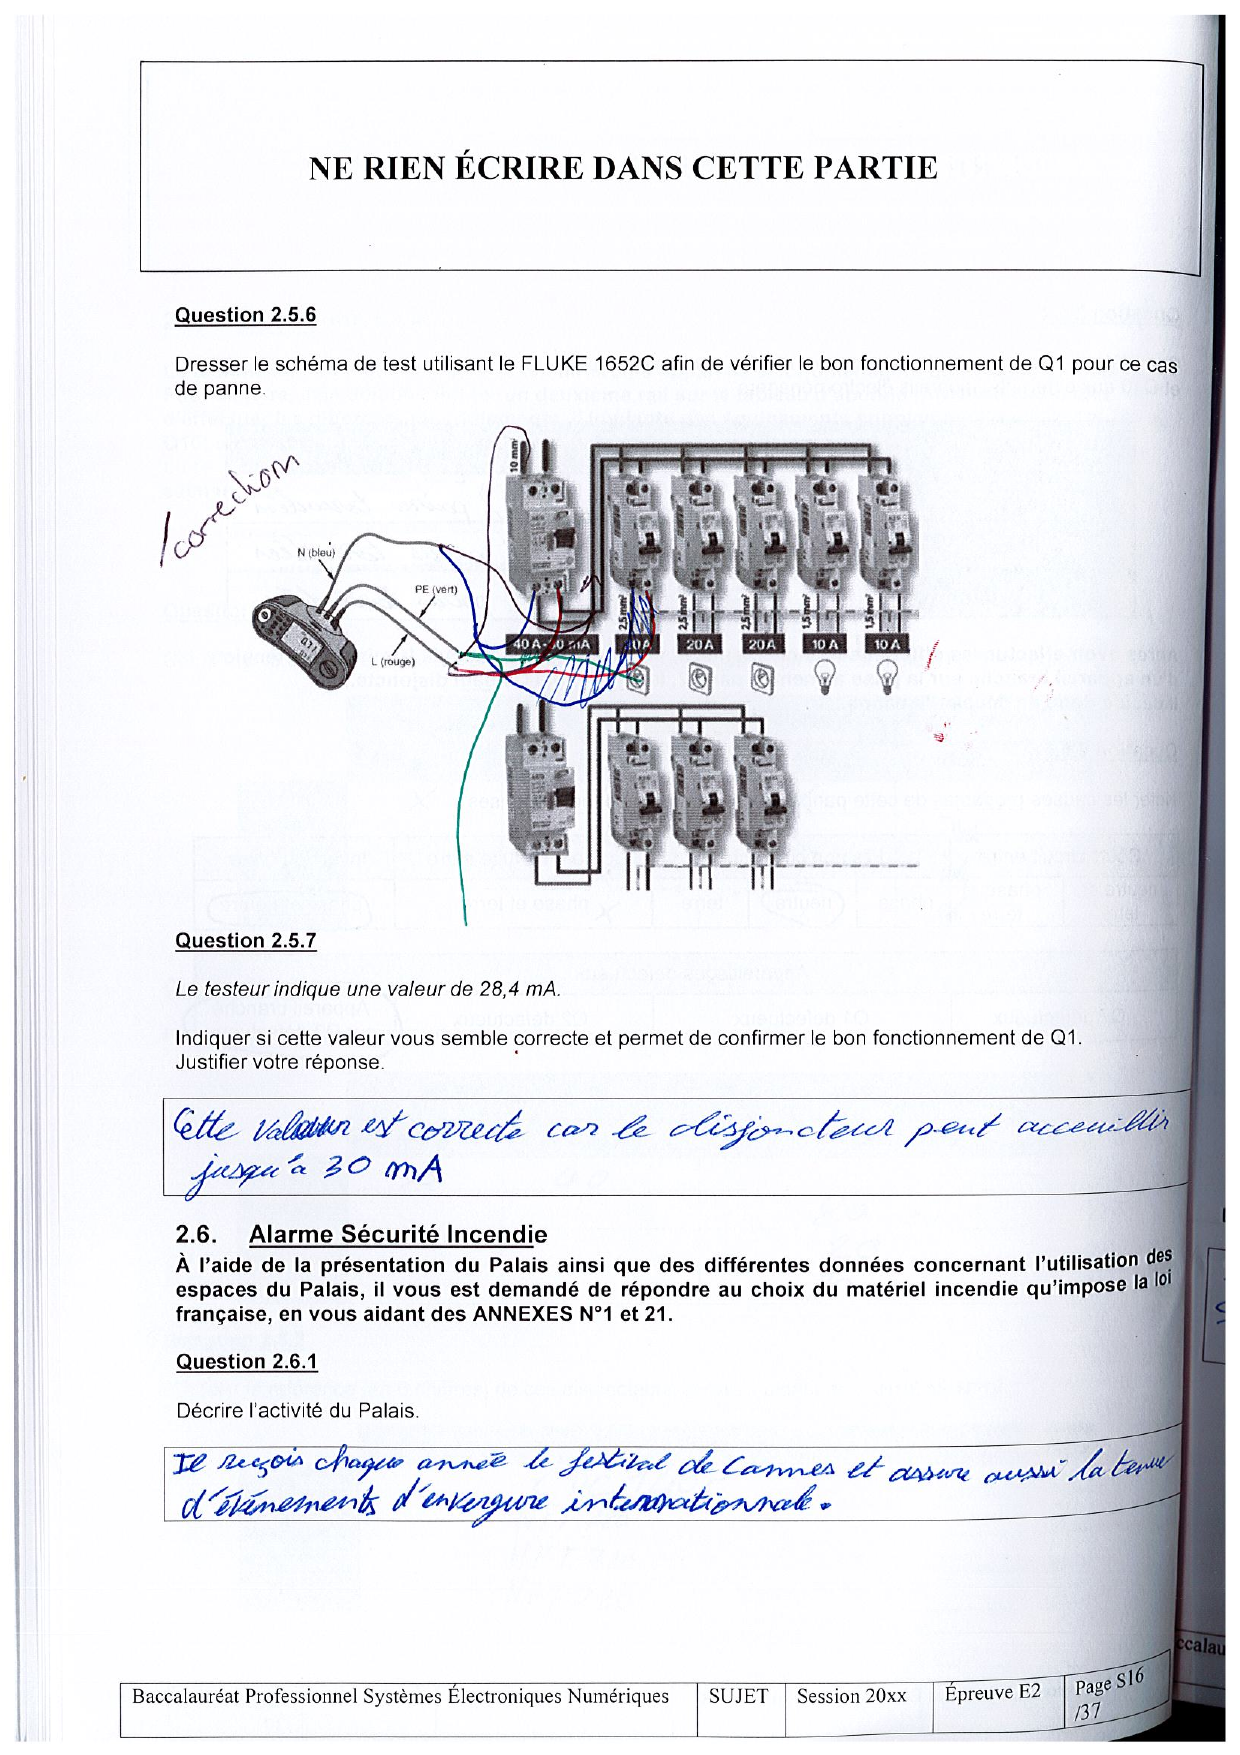 NE RIEN ÉCRIRE DANS CETTE PARTIE
Question 2.5.6
Dresser le schéma de test utilisant le FLUKE 1652C afin de vérifier le bon fonctionnement de Q1 pour ce cas
de panne.
/correction
10 mm²
N (bleu)
PE (vert)
L (rouge)
2,5 mm²
2,5 mm²
2,5 mm²
1,5 mm²
1,5 mm²
40 A
20A
20A
10 A
10 A
Question 2.5.7
Le testeur indique une valeur de 28,4 mA.
Indiquer si cette valeur vous semble correcte et permet de confirmer le bon fonctionnement de Q1.
Justifier votre réponse.
Cette valeur est correcte car le disjoncteur peut acceuillir
jusqu'à 30 mA
2.6. Alarme Sécurité Incendie
À l'aide de la présentation du Palais ainsi que des différentes données concernant l'utilisation des
espaces du Palais, il vous est demandé de répondre au choix du matériel incendie qu'impose la loi
française, en vous aidant des ANNEXES N°1 et 21.
Question 2.6.1
Décrire l'activité du Palais.
Il reçois chaque année le festival de Cannes et assure aussi la tenue
d'événements d'envergure internationnale.
Baccalauréat Professionnel Systèmes Électroniques Numériques SUJET Session 20xx Épreuve E2 Page S16
/37
ccalau